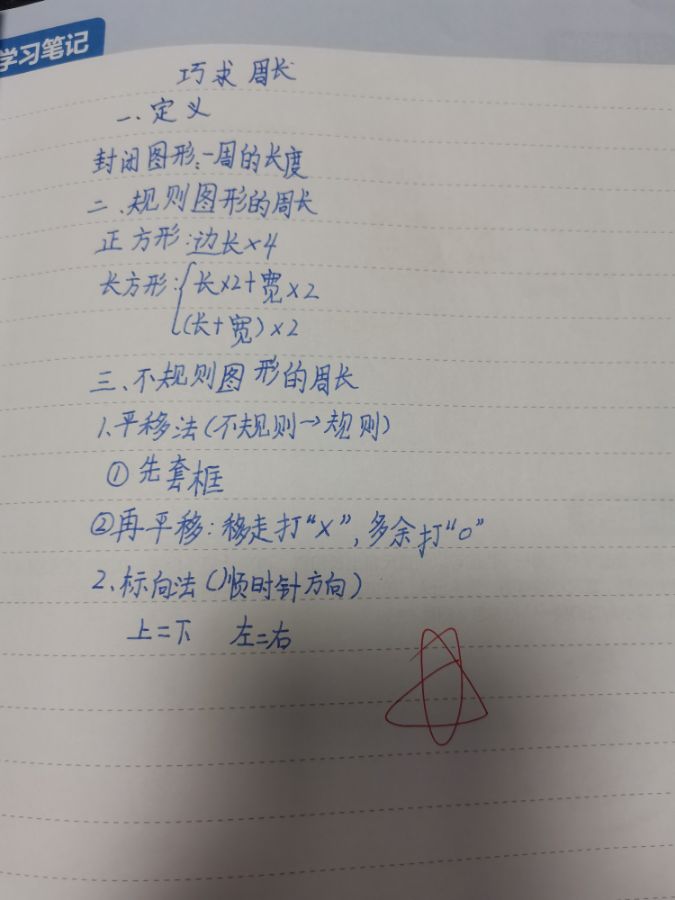 学习笔记
巧求周长
一、定义
封闭图形:一周的长度
二、规则图形的周长
正方形:边长×4
长方形:{长×2+宽×2
(长+宽)×2
三、不规则图形的周长
1.平移法(不规则→规则)
①先套框
②再平移:移走打“×”,多余打“○”
2.标向法(顺时针方向)
上=下 左=右